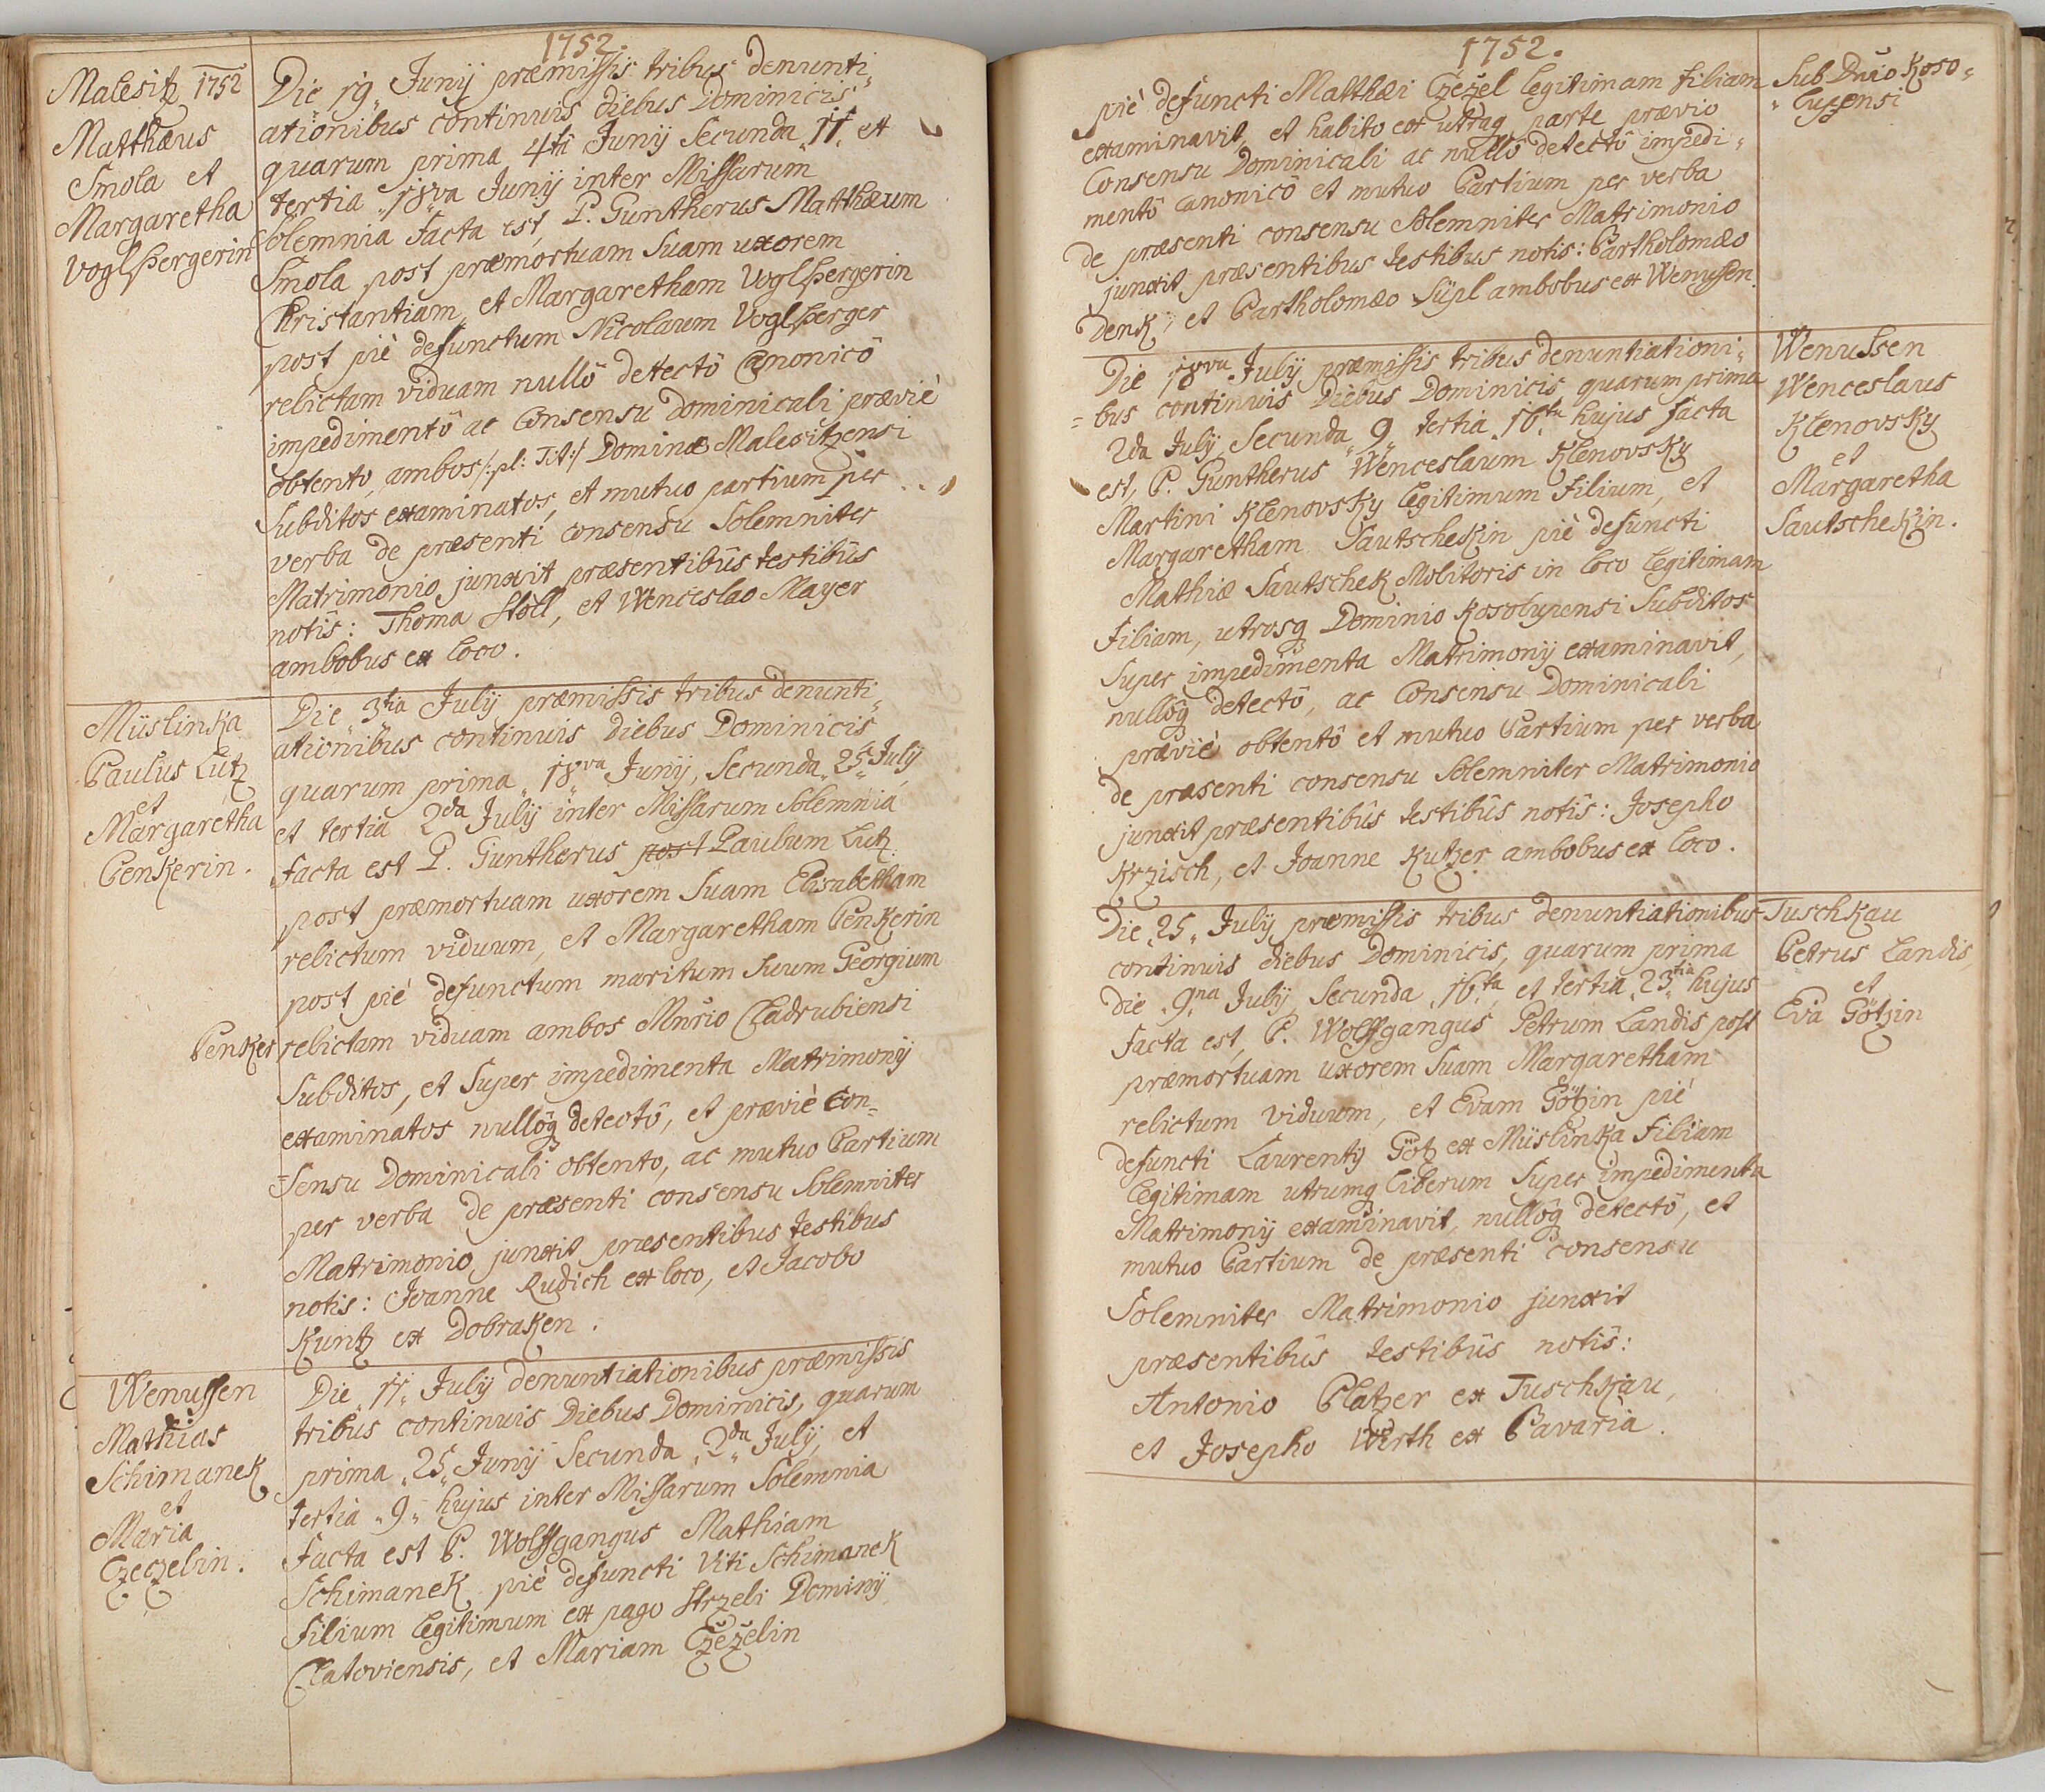 1752.
Malesitz 1752
Matthæus
Smola et
Margaretha
Voglspergerin
Die 19 Junij præmissis tribus denunti-
ationibus continuis diebus Dominicis
quarum prima 4ta Junij Secunda 11, et
tertia 18va Junij inter Missarum
Solemnia facta est, P. Guntherus Matthæum
Smola post præmortuam Suam uxorem
Christantiam, et Margaretham Voglspergerin
post piè defunctum Nicolaum Voglsperger
relictam viduam nullô detectô Canonicô
impedimentô ac Consensu Dominicali præviè
obtento, ambos /: pl: Tit :/ Dominæ Malesitzensi
Subditos examinatos, et mutuo partium per
verba de præsenti consensu Solemniter
Matrimonio junxit præsentibûs testibûs
notis: Thoma Stöll, et Wenceslao Mayer
ambobus ex loco.
Müslinka
Paulus Lutz
et
Margaretha
Penkerin.
Die 3tia July præmissis tribus denunti-
ationibus continuis diebus Dominicis
quarum prima 18va Junij, Secunda 25 July
et tertia 2da July inter Missarum Solemnia
facta est P. Guntherus post Paulum Lutz
post præmortuam uxorem Suam Elisabetham
relictum viduum, et Margaretham Penkerin
post piè defunctum maritum Suum Georgium
Penker relictam viduam ambos Mnrio Cladrubiensi
Subditos, et Super impedimenta Matrimonij
examinatos nullôq detectô, et præviè Con-
=Sensu Dominicali obtento, ac mutuo Partium
per verba de præsenti consensu Solemniter
Matrimonio junxit præsentibus testibus
notis: Joanne Rudich ex loco, et Jacobo
Kuntz ex Dobraken.
Wenussen
Mathias
Schimanek
et
Maria
Czeczelin.
Die 11 July denuntiationibus præmissis
tribus continuis Diebus Dominicis, quarum
prima 25 Junij Secunda 2da July, et
tertia 9 hujus inter Missarum Solemnia
facta est P. Wolffgangus Mathiam
Schimanek piè defuncti Viti Schimanek
filium legitimum ex pago Strzeli Dominij
Clatoviensis, et Mariam Czeželin
1752.
piè defuncti Matthæi Czežel legitimam filiam
examinavit, et habito ex utraq parte prævio
Consensu Dominicali ac nullô detectô impedi-
mentô canonicô et mutuo Partium per verba
de præsenti consensu Solemniter Matrimonio
junxit præsentibus testibus notis: Bartholomæo
Denk, et Bartholomæo Süpl ambobus ex Wenussen.
Sub Dnio Koso-
-lupensi
Die 18va July præmissis tribus denuntiationi-
=bus continuis Diebus Dominicis quarum prima
2da July, Secunda 9 tertia 16ta hujus facta
est, P. Guntherus Wenceslaum Klenovsky
Martini Klenovsky legitimum filium, et
Margaretham Sautschekin piè defuncti
Mathiæ Sautschek Molitoris in loco legitimam
filiam, utrosq Dominio Kosolupensi Subditos
Super impedimenta Matrimonij examinavit,
nullôq detectô, ac Consensu Dominicali
præviè obtentô et mutuo Partium per verba
de præsenti consensu Solemniter Matrimonio
junxit præsentibûs testibûs notîs: Josepho
Krzisch, et Joanne Kutzer ambobus ex loco.
Wenussen
Wenceslaus
Klenovsky
et
Margaretha
Sautschekin.
Die 25 July præmissis tribus denuntiationibus
continuis diebus Dominicis, quarum prima
die 9na July Secunda 16ta et tertia 23tia hujus
facta est, P. Wolffgangus Petrum Landis post
præmortuam uxorem Suam Margaretham
relictum viduum, et Evam Götzin piè
defuncti Laurentij Götz ex Müslinka filiam
legitimam utrumq liberum Super impedimenta
Matrimonij examinavit, nullôq detectô, et
mutuo Partium de præsenti consensu
Solemniter Matrimonio junxit
præsentibûs testibûs notîs:
Antonio Platzer ex Tuschkau,
et Josepho Wirth ex Bavaria.
Tuschkau
Petrus Landis,
et
Eva Götzin